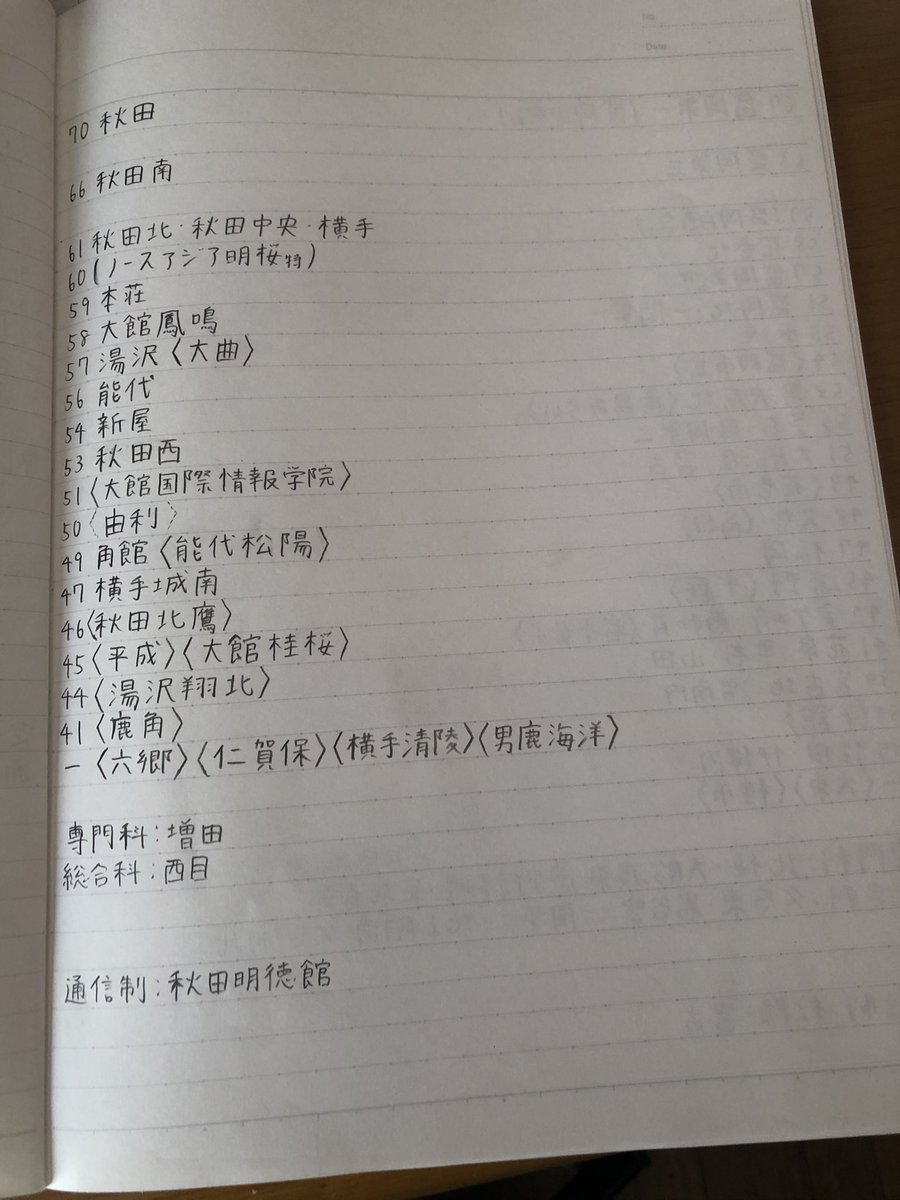 No.
Date
70 秋田
66 秋田南
61 秋田北・秋田中央・横手
60 (ノースアジア明桜特)
59 本荘
58 大館鳳鳴
57 湯沢〈大曲〉
56 能代
54 新屋
53 秋田西
51〈大館国際情報学院〉
50〈由利〉
49 角館〈能代松陽〉
47 横手城南
46〈秋田北鷹〉
45〈平成〉〈大館桂桜〉
44〈湯沢翔北〉
41〈鹿角〉
ー〈六郷〉〈仁賀保〉〈横手清陵〉〈男鹿海洋〉
専門科:増田
総合科:西目
通信制:秋田明徳館